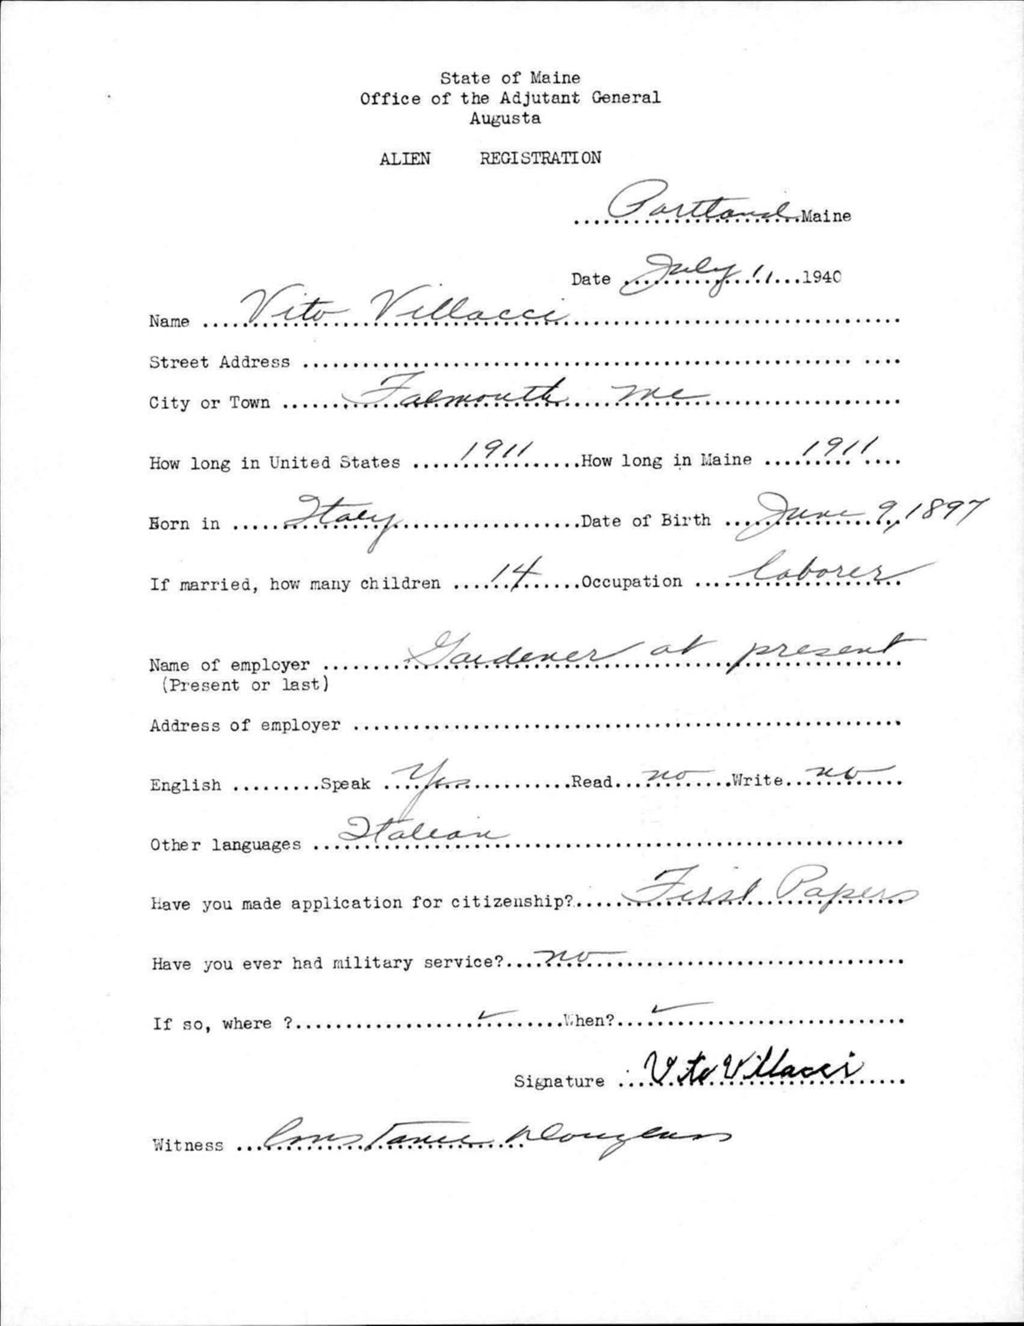 State of Maine
Office of the Adjutant General
Augusta
ALIEN REGISTRATION
Portland Maine
Date July 11 1940
Name Vito Villacci
Street Address
City or Town Falmouth Me
How long in United States 1911 How long in Maine 1911
Born in Italy Date of Birth June 9, 1897
If married, how many children 14 Occupation laborer
Name of employer Gardener at present
(Present or last)
Address of employer
English Speak Yes Read no Write no
Other languages Italian
Have you made application for citizenship? First Papers
Have you ever had military service? no
If so, where ? ✓ When? ✓
Signature Vito Villacci
Witness Constance Douglass